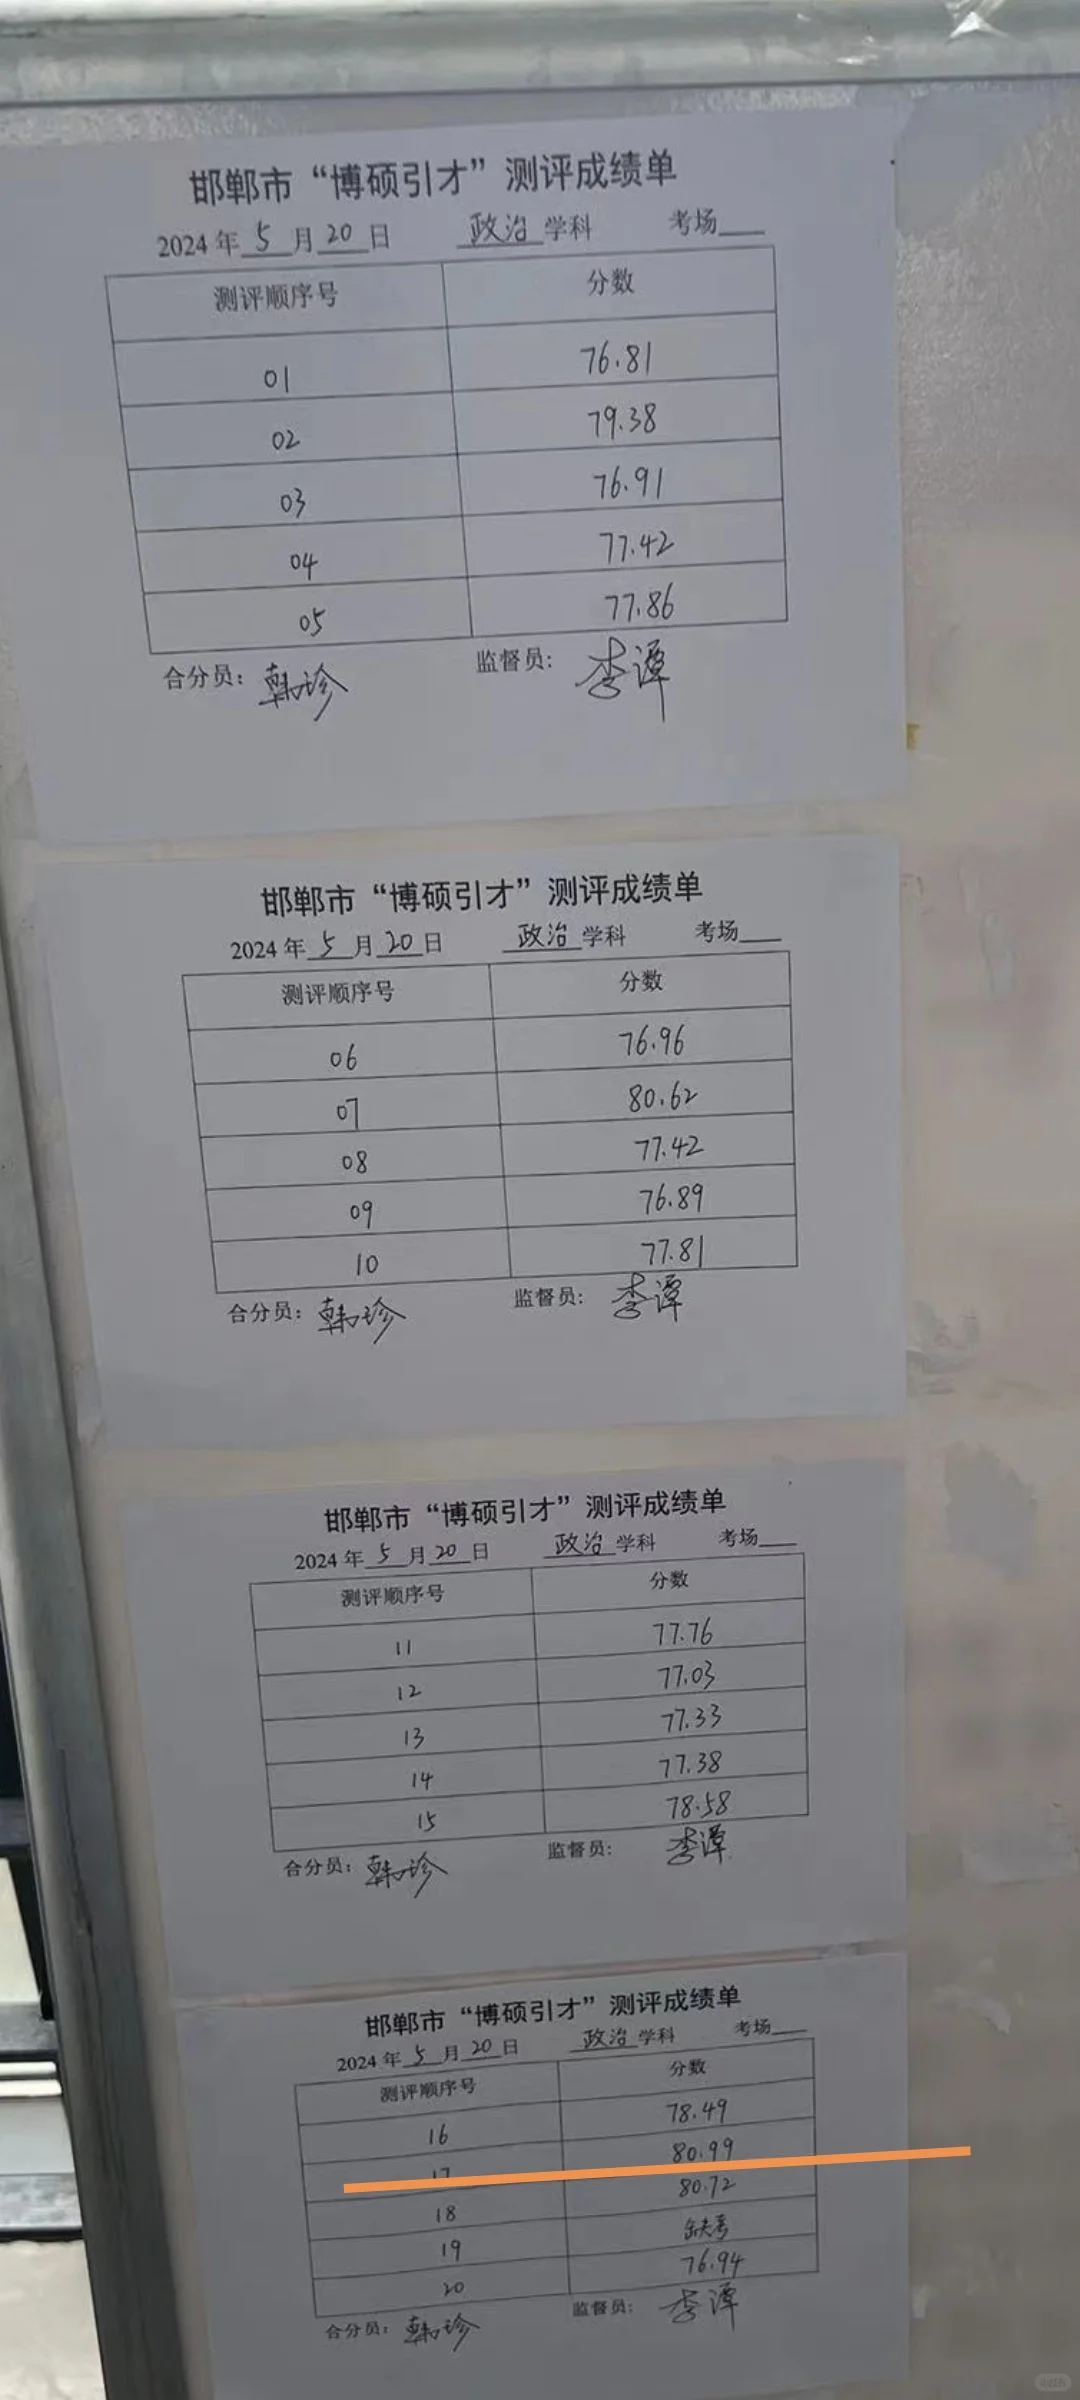 邯郸市“博硕引才”测评成绩单
2024年5月20日 政治学科 考场
测评顺序号 分数
01 76.81
02 79.38
03 76.91
04 77.42
05 77.86
合分员：韩珍 监督员：李谭
邯郸市“博硕引才”测评成绩单
2024年5月20日 政治学科 考场
测评顺序号 分数
06 76.96
07 80.62
08 77.42
09 76.89
10 77.81
合分员：韩珍 监督员：李谭
邯郸市“博硕引才”测评成绩单
2024年5月20日 政治学科 考场
测评顺序号 分数
11 77.76
12 77.03
13 77.33
14 77.38
15 78.58
合分员：韩珍 监督员：李谭
邯郸市“博硕引才”测评成绩单
2024年5月20日 政治学科 考场
测评顺序号 分数
16 78.49
17 80.99
18 80.72
19 缺考
20 76.94
合分员：韩珍 监督员：李谭